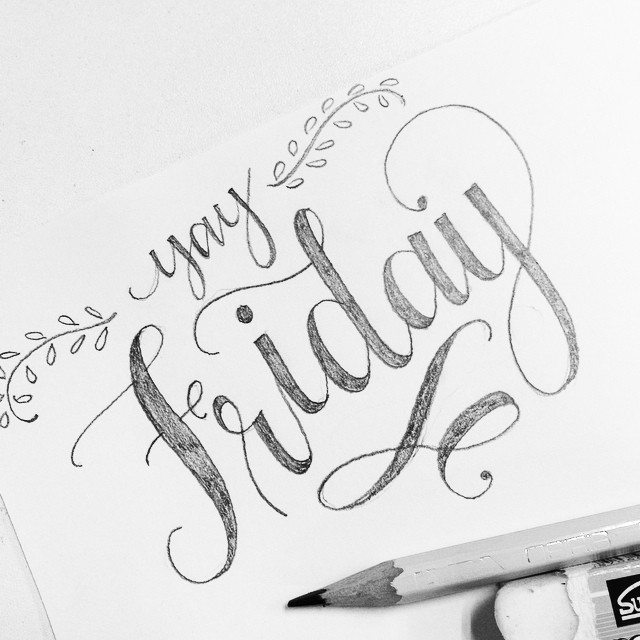 yay
Friday